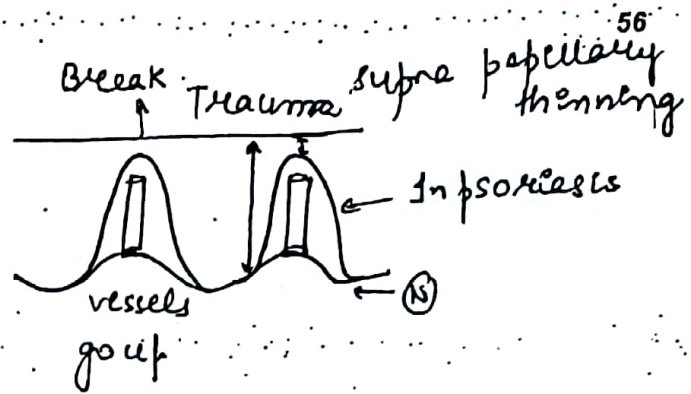 56
Break
Trauma
supra papillary
thinning
In psoriasis
N
vessels
go up